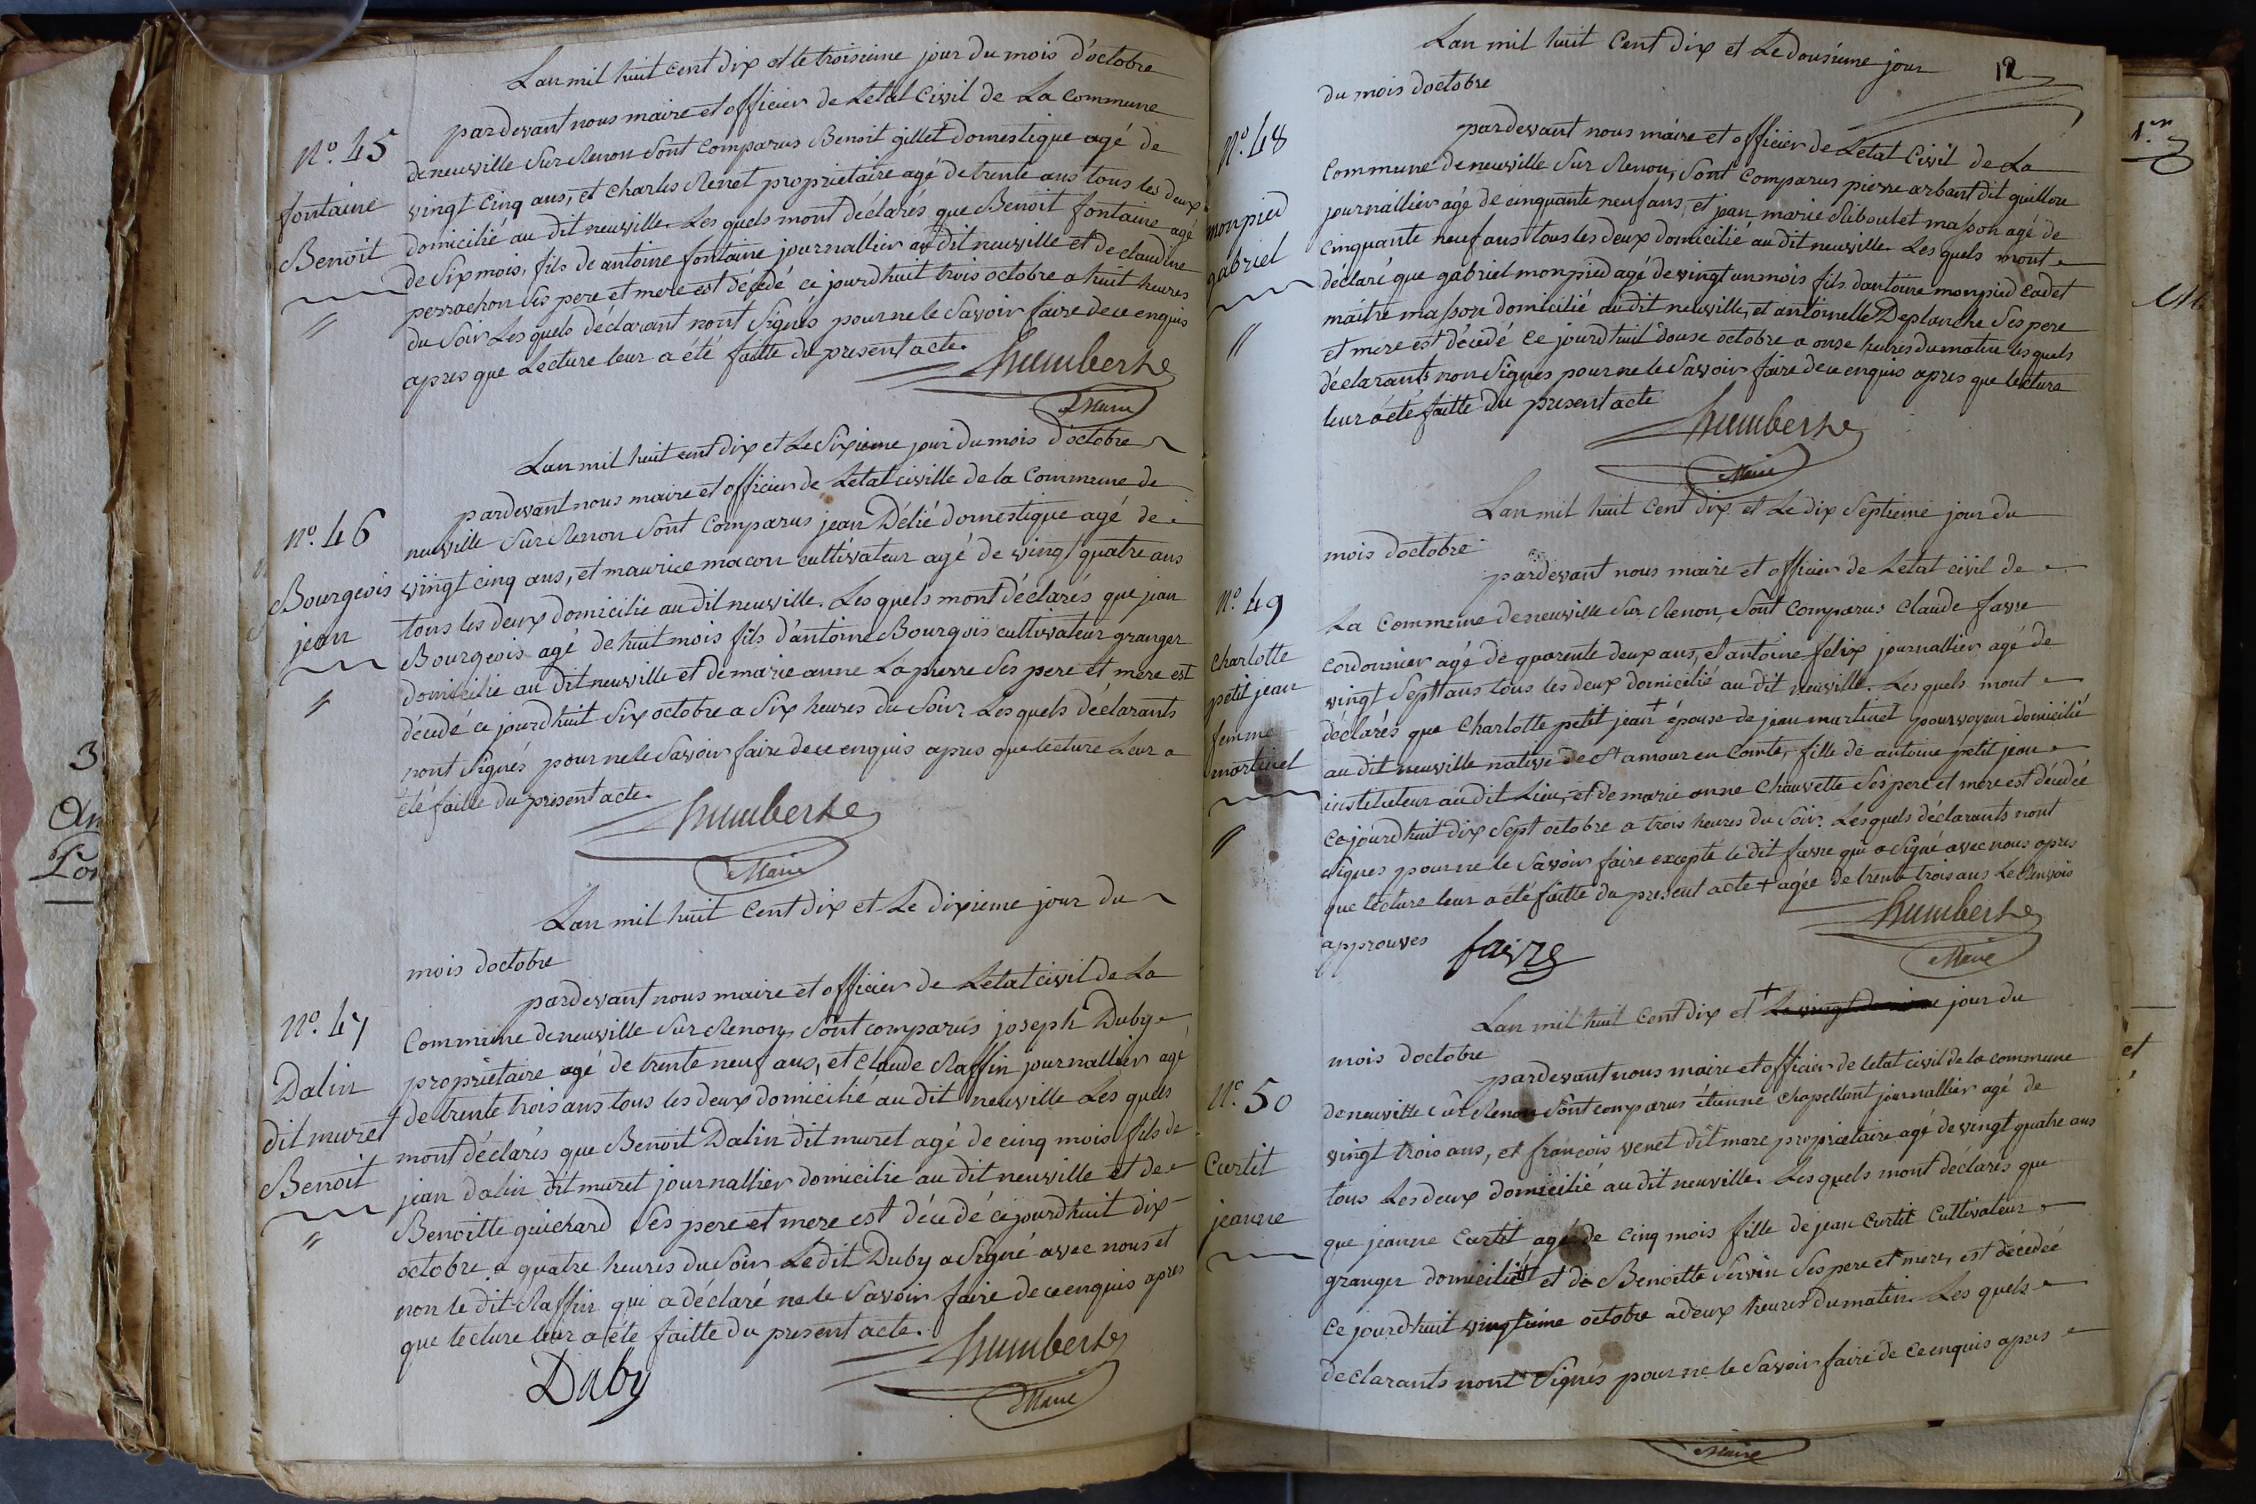 Lan mil huit cent dix et le troisieme jour du mois d'octobre
pardevant nous maire et officier de Letat Civil de La commune
N.o 45
de neuville Sur Renon Sont comparus Benoit gillet domestique agé de
fontaine
vingt cinq ans, et charles Renet proprietaire agé de trente ans tous les deux
Benoit
domicilié au dit neuville. Les quels mont déclarés que Benoit fontaine agé
de Six mois, fils de antoine fontaine journallier au dit neuville et de claudine
perrachon Ses pere et mere est décédé ce jourdhuit trois octobre a huit heures
du Soir Les quels déclarant nont Signés pour ne le Savoir faire de ce enquis
apres que Lecture leur a été faitte du present acte.
humberte
Maire
Lan mil huit cent dix et Le Sixieme jour du mois d'octobre
pardevant nous maire et officier de Letat civille de la Commune de
N.o 46
neuville Sur Renon Sont Comparus jean Délié domestique agé de
Bourgeois
vingt cinq ans, et maurice macon cultivateur agé de vingt quatre ans
jean
tous les deux domicilié au dit neuville. Les quels mont déclarés que jean
Bourgeois agé de huit mois fils d'antoine Bourgois cultivateur granger
domicilié au dit neuville et de marie anne Lapierre Ses pere et mere est
décédé ce jourdhuit Six octobre a Six heures du Soir Les quels déclarants
nont Signés pour ne le Savoir faire de ce enquis apres que lecture Leur a
été faitte du present acte.
humberte
Maire
Lan mil huit cent dix et Le dixieme jour du
mois doctobre
pardevant nous maire et officier de Letat civil de La
N.o 47
Commune de neuville Sur Renon, Sont comparus joseph Duby
Dalin
proprietaire agé de trente neuf ans, et claude Raffin journallier agé
dit muret
de trente trois ans tous les deux domicilié au dit neuville Les quels
Benoit
mont déclarés que Benoit Dalin dit muret agé de cinq mois fils de
jean dalin dit muret journallier domicilie au dit neuville et de
Benoitte guichard Ses pere et mere est décédé ce jourdhuit dix
octobre a quatre heures du Soir Le dit Duby a Signé avec nous et
non le dit Raffin qui a déclaré ne le Savoir faire de ce enquis apres
que lecture leur a été faitte du present acte.
humberte
Duby
Maire
Lan mil huit Cent dix et Le dousieme jour
12
du mois doctobre
pardevant nous maire et officier de Letat Civil de La
N.o 48
Commune de neuville Sur Renon, Sont Comparus pierre arbant dit guillou
monpied
journallier agé de cinquante neuf ans, et jean marie Riboulet masson agé de
gabriel
Cinquante neuf ans tous les deux domicilié au dit neuville. Les quels mont
déclaré que gabriel monpied agé de vingt un mois fils dantoine monpied Cadet
maitre masson domicilié au dit neuville, et antoinette Deplanche Ses pere
et mere est décédé Ce jourdhuit douse octobre a onse heures du matin les quels
déclarants non Signés pour ne le Savoir faire de ce enquis apres que lecture
leur a été faitte du present acte
humberte
Maire
Lan mil huit Cent dix et Le dix Septieme jour du
mois doctobre
pardevant nous maire et officier de Letat civil de
N.o 49
La Commune de neuville Sur Renon, Sont Comparus Claude favre
Charlotte
cordonnier agé de quarente deux ans, et antoine felix journallier agé de
petit jean
vingt Sept ans tous les deux domicilié au dit neuville. Les quels mont
femme
déclarés que Charlotte petit jean + épouse de jean martinet pourvoyeur domicilié
martinet
au dit neuville native de St amour en Comté, fille de antoine petit jean
instituteur au dit Lieu, et de marie anne Chauvette Ses pere et mere est décédée
Cejourdhuit dix Sept octobre a trois heures du Soir. Les quels déclarants nont
Signes pour ne le Savoir faire excepte le dit favre qui a Signé avec nous apres
que lecture leur a été faitte du present acte + agée de trente trois ans Le Renvois
approuves
favre
humberte
Maire
Lan mil huit Cent dix et + jour du
mois doctobre
pardevant nous maire et officier de letat civil de la commune
N.o 50
de neuville Sur Renon Sont comparus étienne Chapellant journallier agé de
vingt trois ans, et françois venet dit mare proprietaire agé de vingt quatre ans
Curtit
tous Les deux domicilié au dit neuville. Les quels mont déclarés que
jeanne
que jeanne Curtit agé de Cinq mois fille de jean Curtit Cultivateur
granger domicilié et de Benoitte Servin Ses pere et mere, est décédée
Ce jourdhuit vingtieme octobre a deux heures du matin. Les quels
declarants nont Signés pour ne le Savoir faire de ce enquis apres
Maire